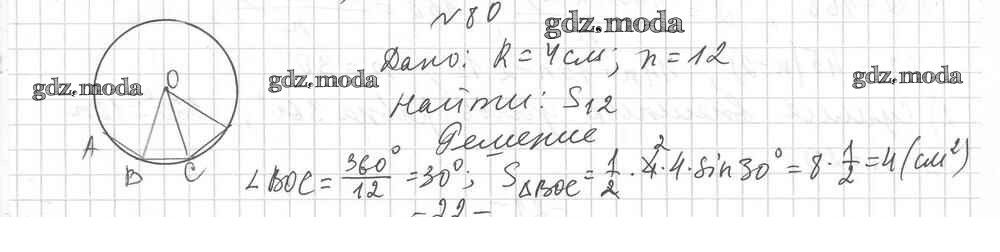 №80
gdz.moda
Дано: R = 4 см; n = 12
gdz.moda gdz.moda gdz.moda
Найти: S₁₂
O
Решение
A
B C
∠BOC = 360°/12 = 30°; S△BOC = 1/2 · 4̸² · 4 · sin 30° = 8 · 1/2 = 4 (см²)
- 22 -